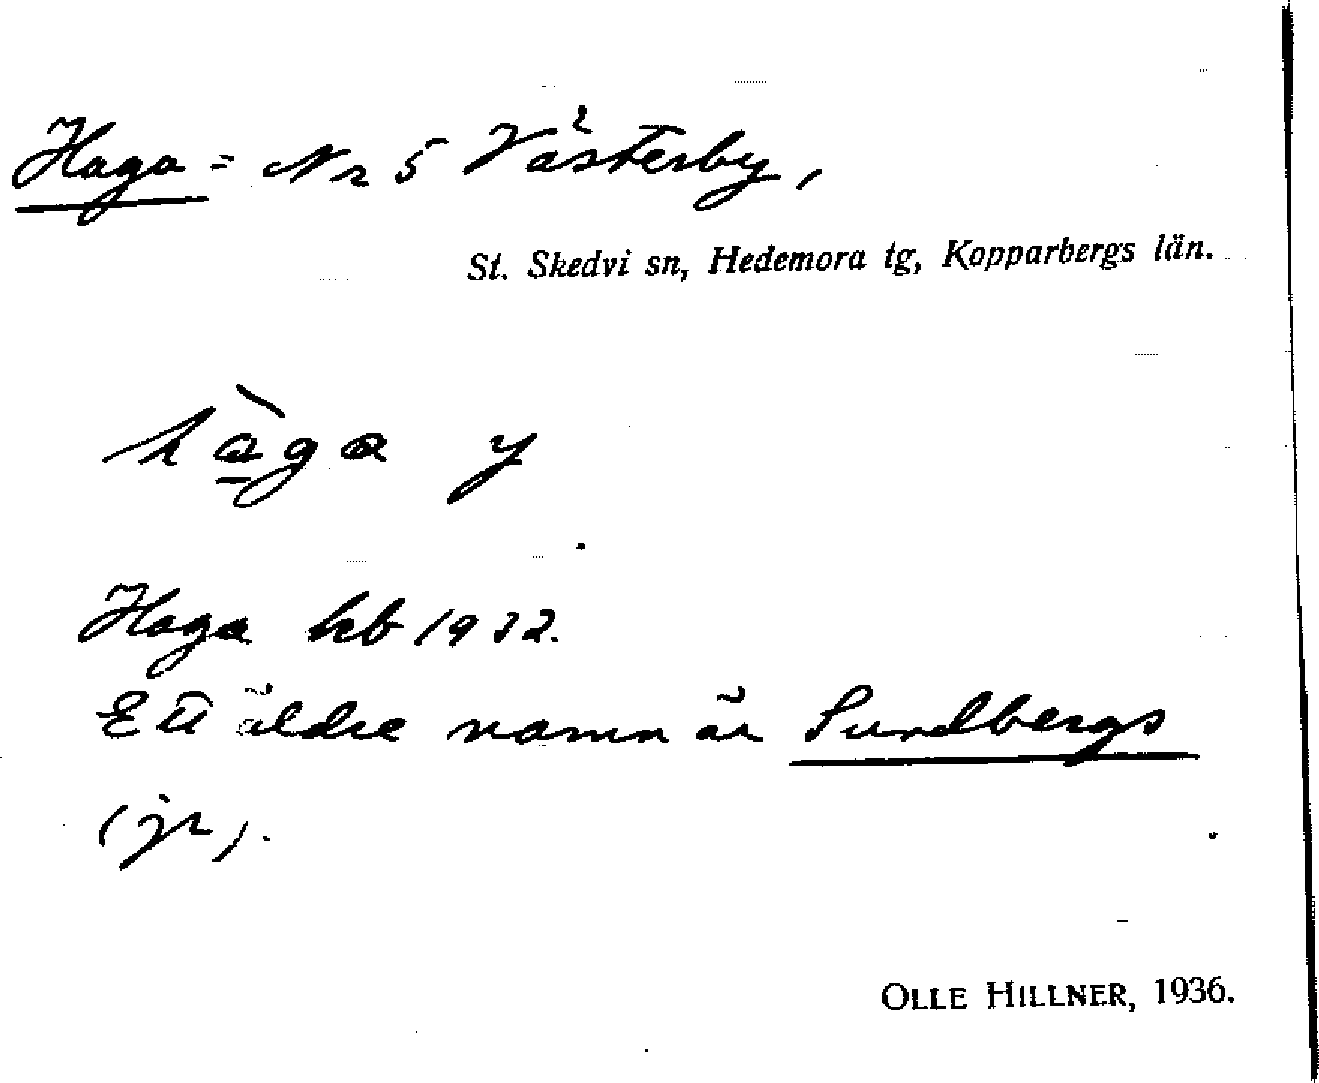 Haga = Nr 5 Västerby,
St. Skedvi sn, Hedemora tg, Kopparbergs län.
hà̱ga y
Haga kb 1932.
Ett äldre namn är Sundbergs
(jr).
OLLE HILLNER, 1936.